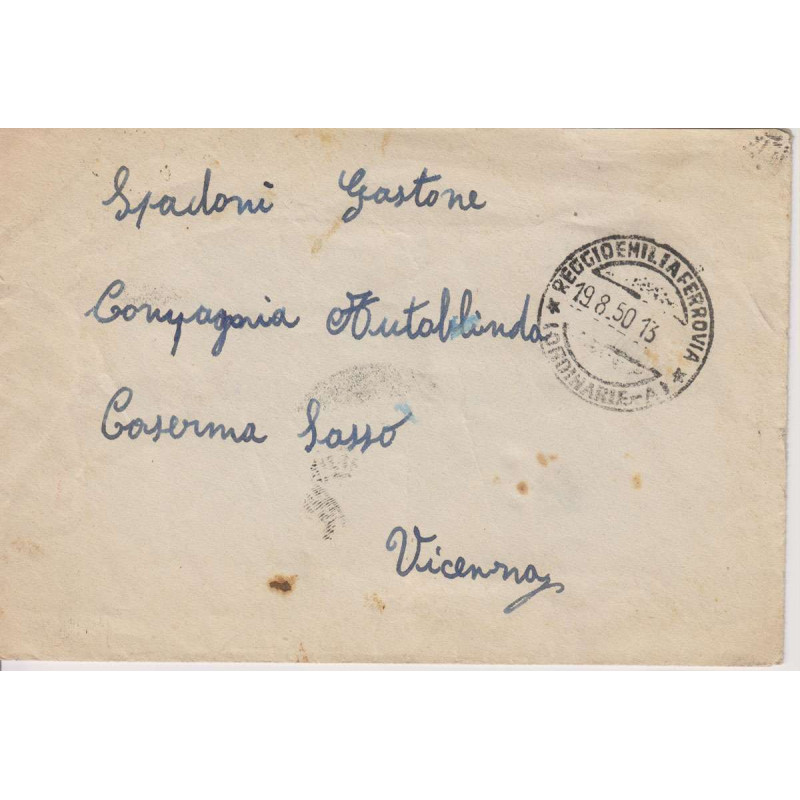 Spadoni Gastone
Compagnia Autoblinda
Caserma Sasso
Vicenza
* REGGIO EMILIA FERROVIA *
19.8.50 13
(ORDINARIE-A)